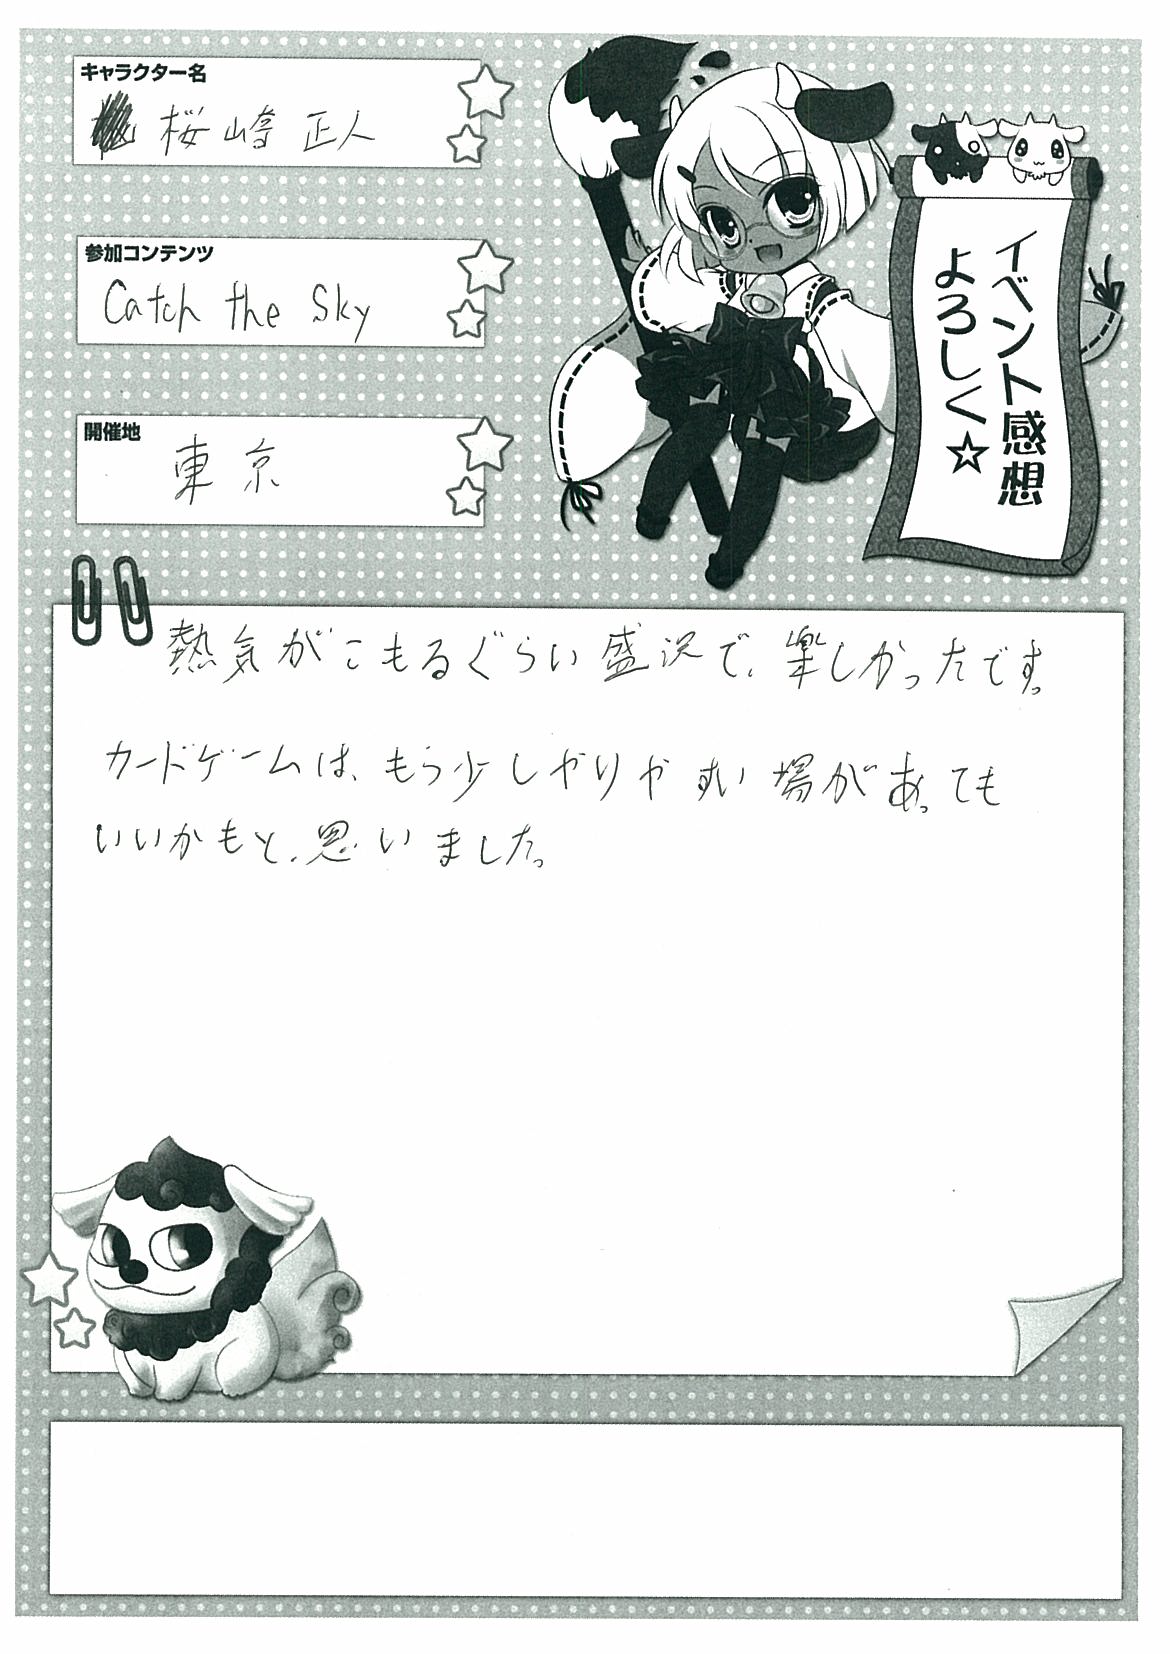 キャラクター名
桜崎 正人
参加コンテンツ
Catch the Sky
開催地
東京
イベント感想
よろしく☆
熱気がこもるぐらい盛況で、楽しかったです。
カードゲームは、もう少しやりやすい場があっても
いいかもと、思いました。